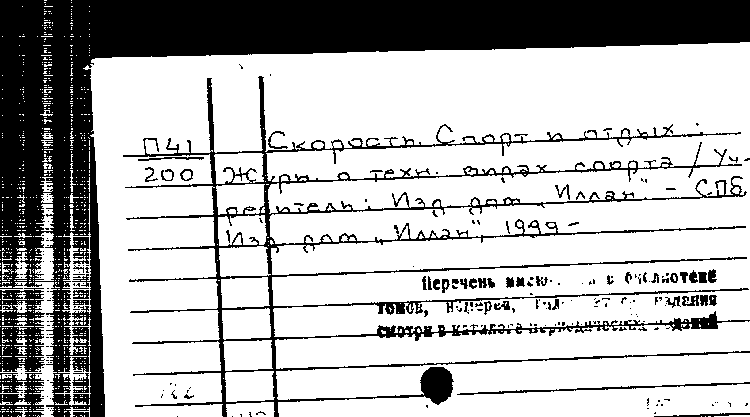 П41 Скорость. Спорт и отдых :
200 Журн. о техн. видах спорта / Уч-
редитель: Изд. дом „Иллан“. - СПб
Изд. дом „Иллан“, 1999 -
Перечень в библиотеке
томов, номеров, издания
смотри в каталоге периодических изданий